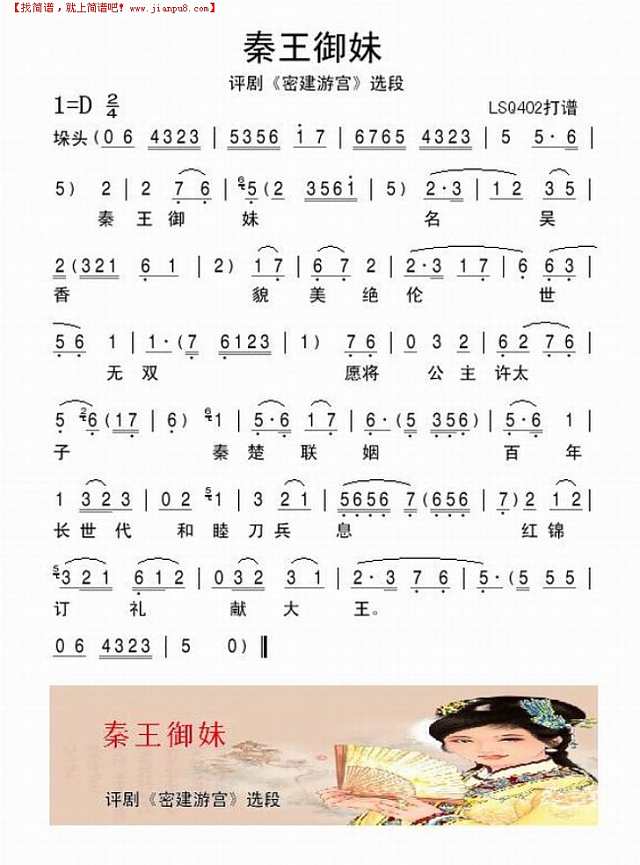 【找简谱，就上简谱吧！www.jianpu8.com】
秦王御妹
评剧《密建游宫》选段
1=D 2/4
LSQ402打谱
垛头(0 6 4323 | 5356 1 7 | 6765 4323 | 5 5·6 |
5) 2 | 2 7 6 | 6 5(2 3561 | 5) 2·3 | 1 2 3 5 |
秦 王 御 妹 名 吴
2(321 6 1 | 2) 1 7 | 6 7 2 | 2·3 1 7 | 6 6 3 |
香 貌 美 绝 伦 世
5 6 1 | 1·(7 6123 | 1) 7 6 | 0 3 2 | 6 2 7 6 |
无 双 愿将 公 主 许太
5 2 6(17 | 6) 6 1 | 5·6 1 7 | 6·(5 356) | 5·6 1 |
子 秦 楚 联 姻 百 年
1 3 2 3 | 0 2 5 1 | 3 2 1 | 5656 7(656 | 7) 2 1 2 |
长 世 代 和 睦 刀 兵 息 红 锦
5 3 2 1 6 1 2 | 0 3 2 3 2 1 | 2·3 7 6 | 5·(5 5 5 |
订 礼 献 大 王。
0 6 4323 | 5 0) ‖
秦王御妹
评剧《密建游宫》选段